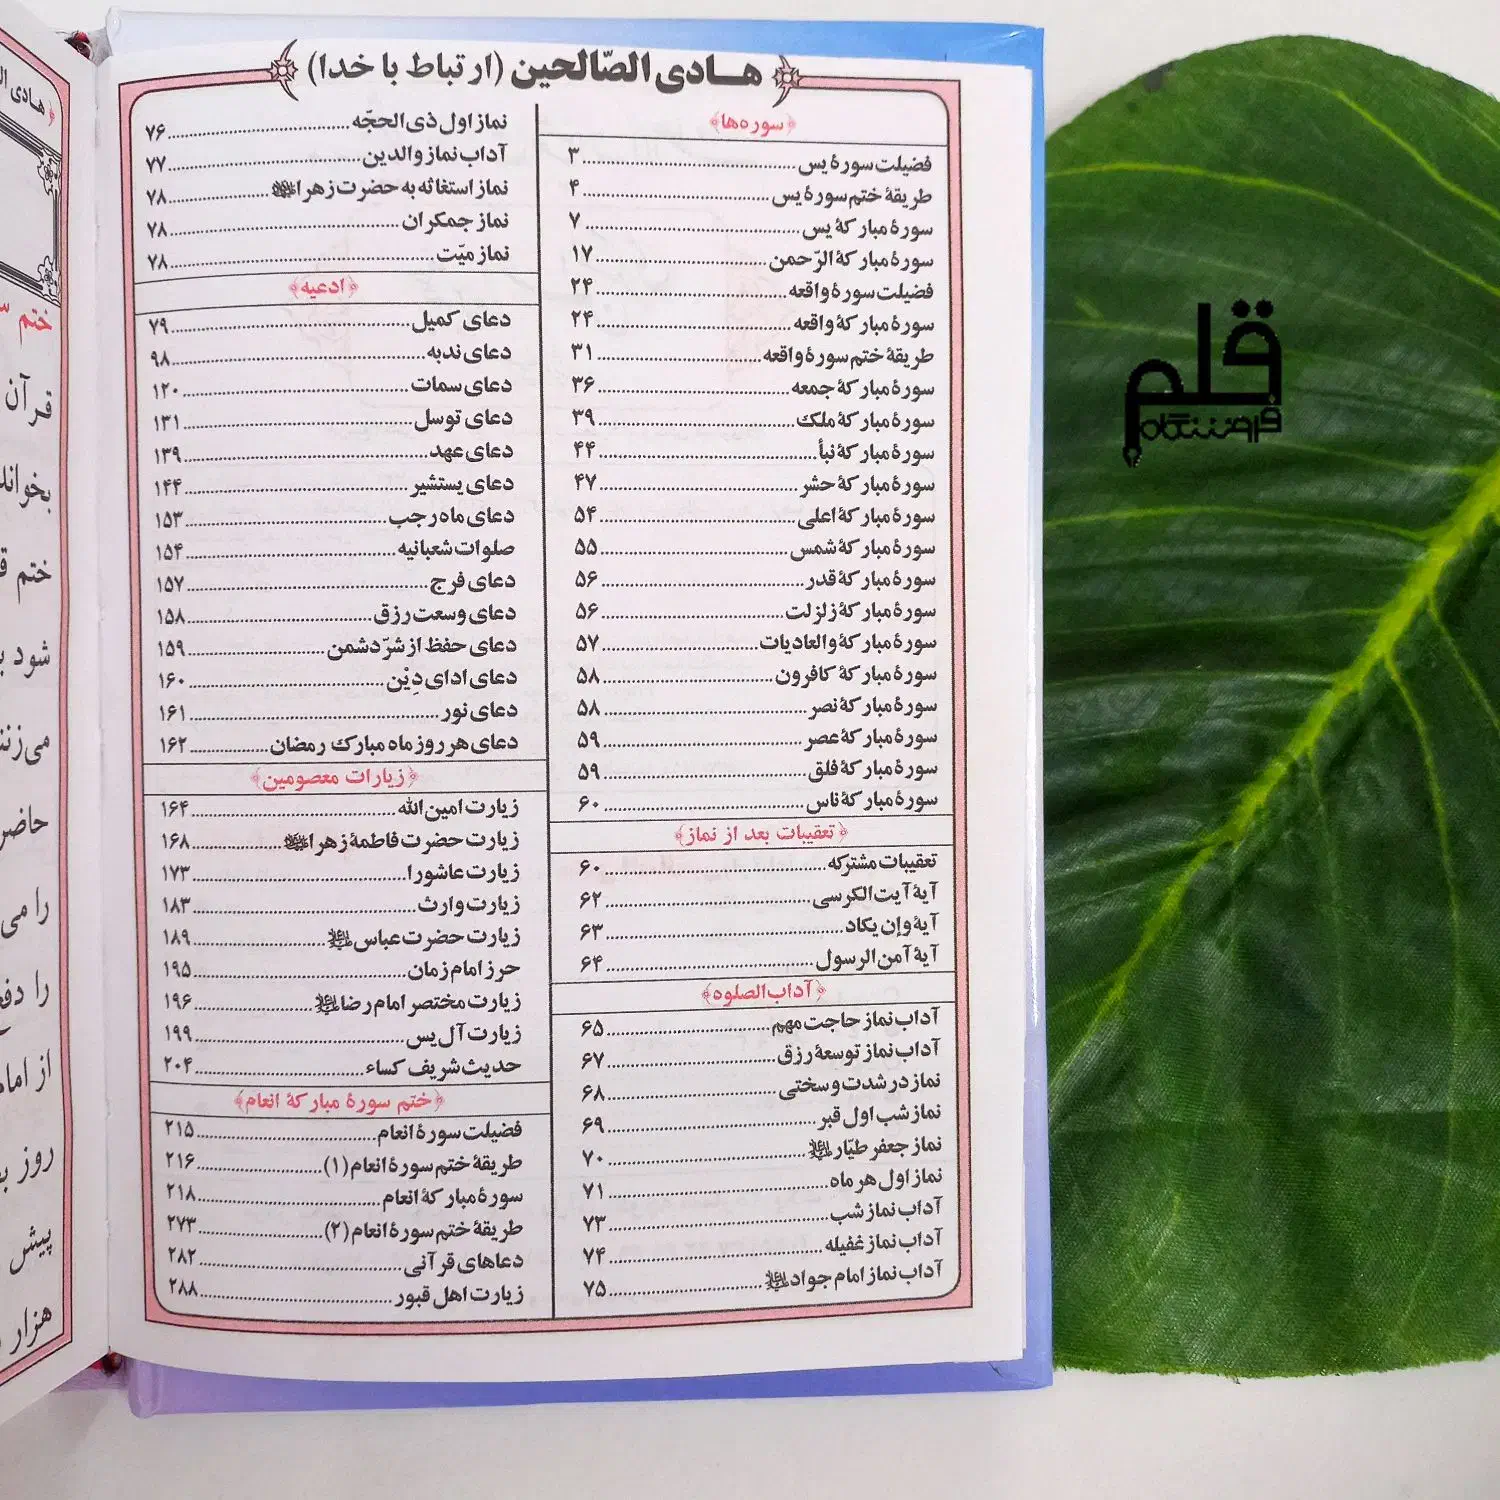 هادی الصّالحین (ارتباط با خدا)
﴿سوره‌ها﴾
فضیلت سورهٔ یس ........ ۳
طریقهٔ ختم سورهٔ یس ........ ۴
سورهٔ مبارکهٔ یس ........ ۷
سورهٔ مبارکهٔ الرّحمن ........ ۱۷
فضیلت سورهٔ واقعه ........ ۲۴
سورهٔ مبارکهٔ واقعه ........ ۲۴
طریقهٔ ختم سورهٔ واقعه ........ ۳۱
سورهٔ مبارکهٔ جمعه ........ ۳۶
سورهٔ مبارکهٔ ملک ........ ۳۹
سورهٔ مبارکهٔ نبأ ........ ۴۴
سورهٔ مبارکهٔ حشر ........ ۴۷
سورهٔ مبارکهٔ اعلی ........ ۵۴
سورهٔ مبارکهٔ شمس ........ ۵۵
سورهٔ مبارکهٔ قدر ........ ۵۶
سورهٔ مبارکهٔ زلزلت ........ ۵۶
سورهٔ مبارکهٔ والعادیات ........ ۵۷
سورهٔ مبارکهٔ کافرون ........ ۵۸
سورهٔ مبارکهٔ نصر ........ ۵۸
سورهٔ مبارکهٔ عصر ........ ۵۹
سورهٔ مبارکهٔ فلق ........ ۵۹
سورهٔ مبارکهٔ ناس ........ ۶۰
﴿تعقیبات بعد از نماز﴾
تعقیبات مشترکه ........ ۶۰
آیهٔ آیت الکرسی ........ ۶۲
آیهٔ وإن یکاد ........ ۶۳
آیهٔ آمن الرسول ........ ۶۴
﴿آداب الصلوه﴾
آداب نماز حاجت مهم ........ ۶۵
آداب نماز توسعهٔ رزق ........ ۶۷
نماز در شدت و سختی ........ ۶۸
نماز شب اول قبر ........ ۶۹
نماز جعفر طیّار علیه‌السلام ........ ۷۰
نماز اول هر ماه ........ ۷۱
آداب نماز شب ........ ۷۳
آداب نماز غفیله ........ ۷۴
آداب نماز امام جواد علیه‌السلام ........ ۷۵
نماز اول ذی الحجّه ........ ۷۶
آداب نماز والدین ........ ۷۷
نماز استغاثه به حضرت زهرا ........ ۷۸
نماز جمکران ........ ۷۸
نماز میّت ........ ۷۸
﴿ادعیه﴾
دعای کمیل ........ ۷۹
دعای ندبه ........ ۹۸
دعای سمات ........ ۱۲۰
دعای توسل ........ ۱۳۱
دعای عهد ........ ۱۳۹
دعای یستشیر ........ ۱۴۴
دعای ماه رجب ........ ۱۵۳
صلوات شعبانیه ........ ۱۵۴
دعای فرج ........ ۱۵۷
دعای وسعت رزق ........ ۱۵۸
دعای حفظ از شرّ دشمن ........ ۱۵۹
دعای ادای دِیْن ........ ۱۶۰
دعای نور ........ ۱۶۱
دعای هر روز ماه مبارک رمضان ........ ۱۶۲
﴿زیارات معصومین﴾
زیارت امین الله ........ ۱۶۴
زیارت حضرت فاطمهٔ زهرا ........ ۱۶۸
زیارت عاشورا ........ ۱۷۳
زیارت وارث ........ ۱۸۳
زیارت حضرت عباس علیه‌السلام ........ ۱۸۹
حرز امام زمان ........ ۱۹۵
زیارت مختصر امام رضا علیه‌السلام ........ ۱۹۶
زیارت آل یس ........ ۱۹۹
حدیث شریف کساء ........ ۲۰۴
﴿ختم سورهٔ مبارکهٔ انعام﴾
فضیلت سورهٔ انعام ........ ۲۱۵
طریقهٔ ختم سورهٔ انعام (۱) ........ ۲۱۶
سورهٔ مبارکهٔ انعام ........ ۲۱۸
طریقهٔ ختم سورهٔ انعام (۲) ........ ۲۷۳
دعاهای قرآنی ........ ۲۸۲
زیارت اهل قبور ........ ۲۸۸
هادی
ختم
قرآن
بخواند
ختم
شود
می‌زنند
حاضر
را می
را دفع
از امام
روز
پیش
هزار
قلم
فروشگاه